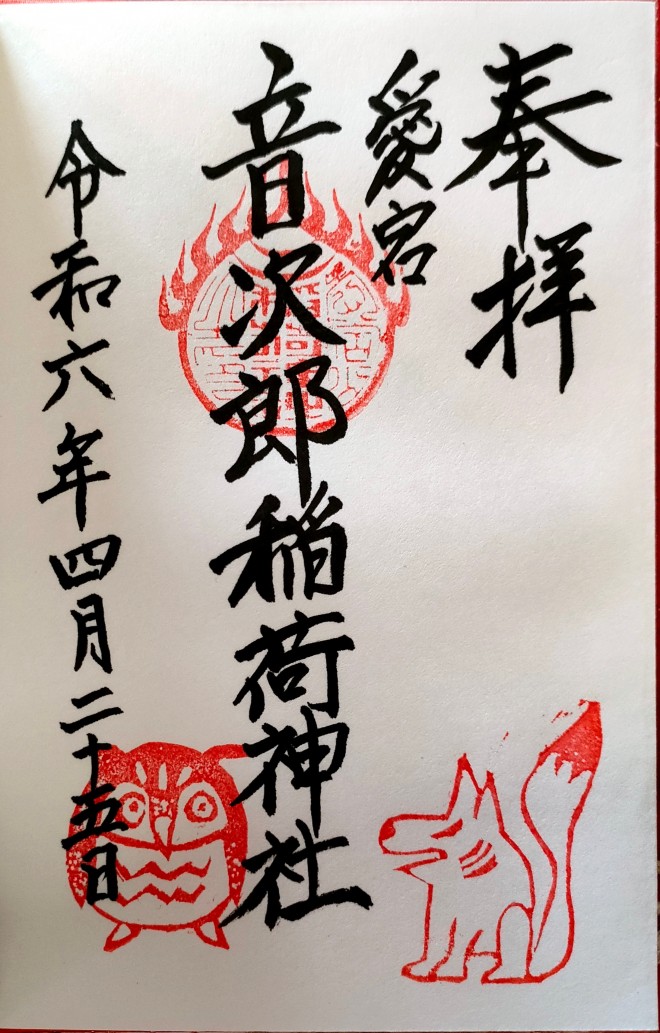 奉拝
愛宕
音次郎稲荷神社
令和六年四月二十五日